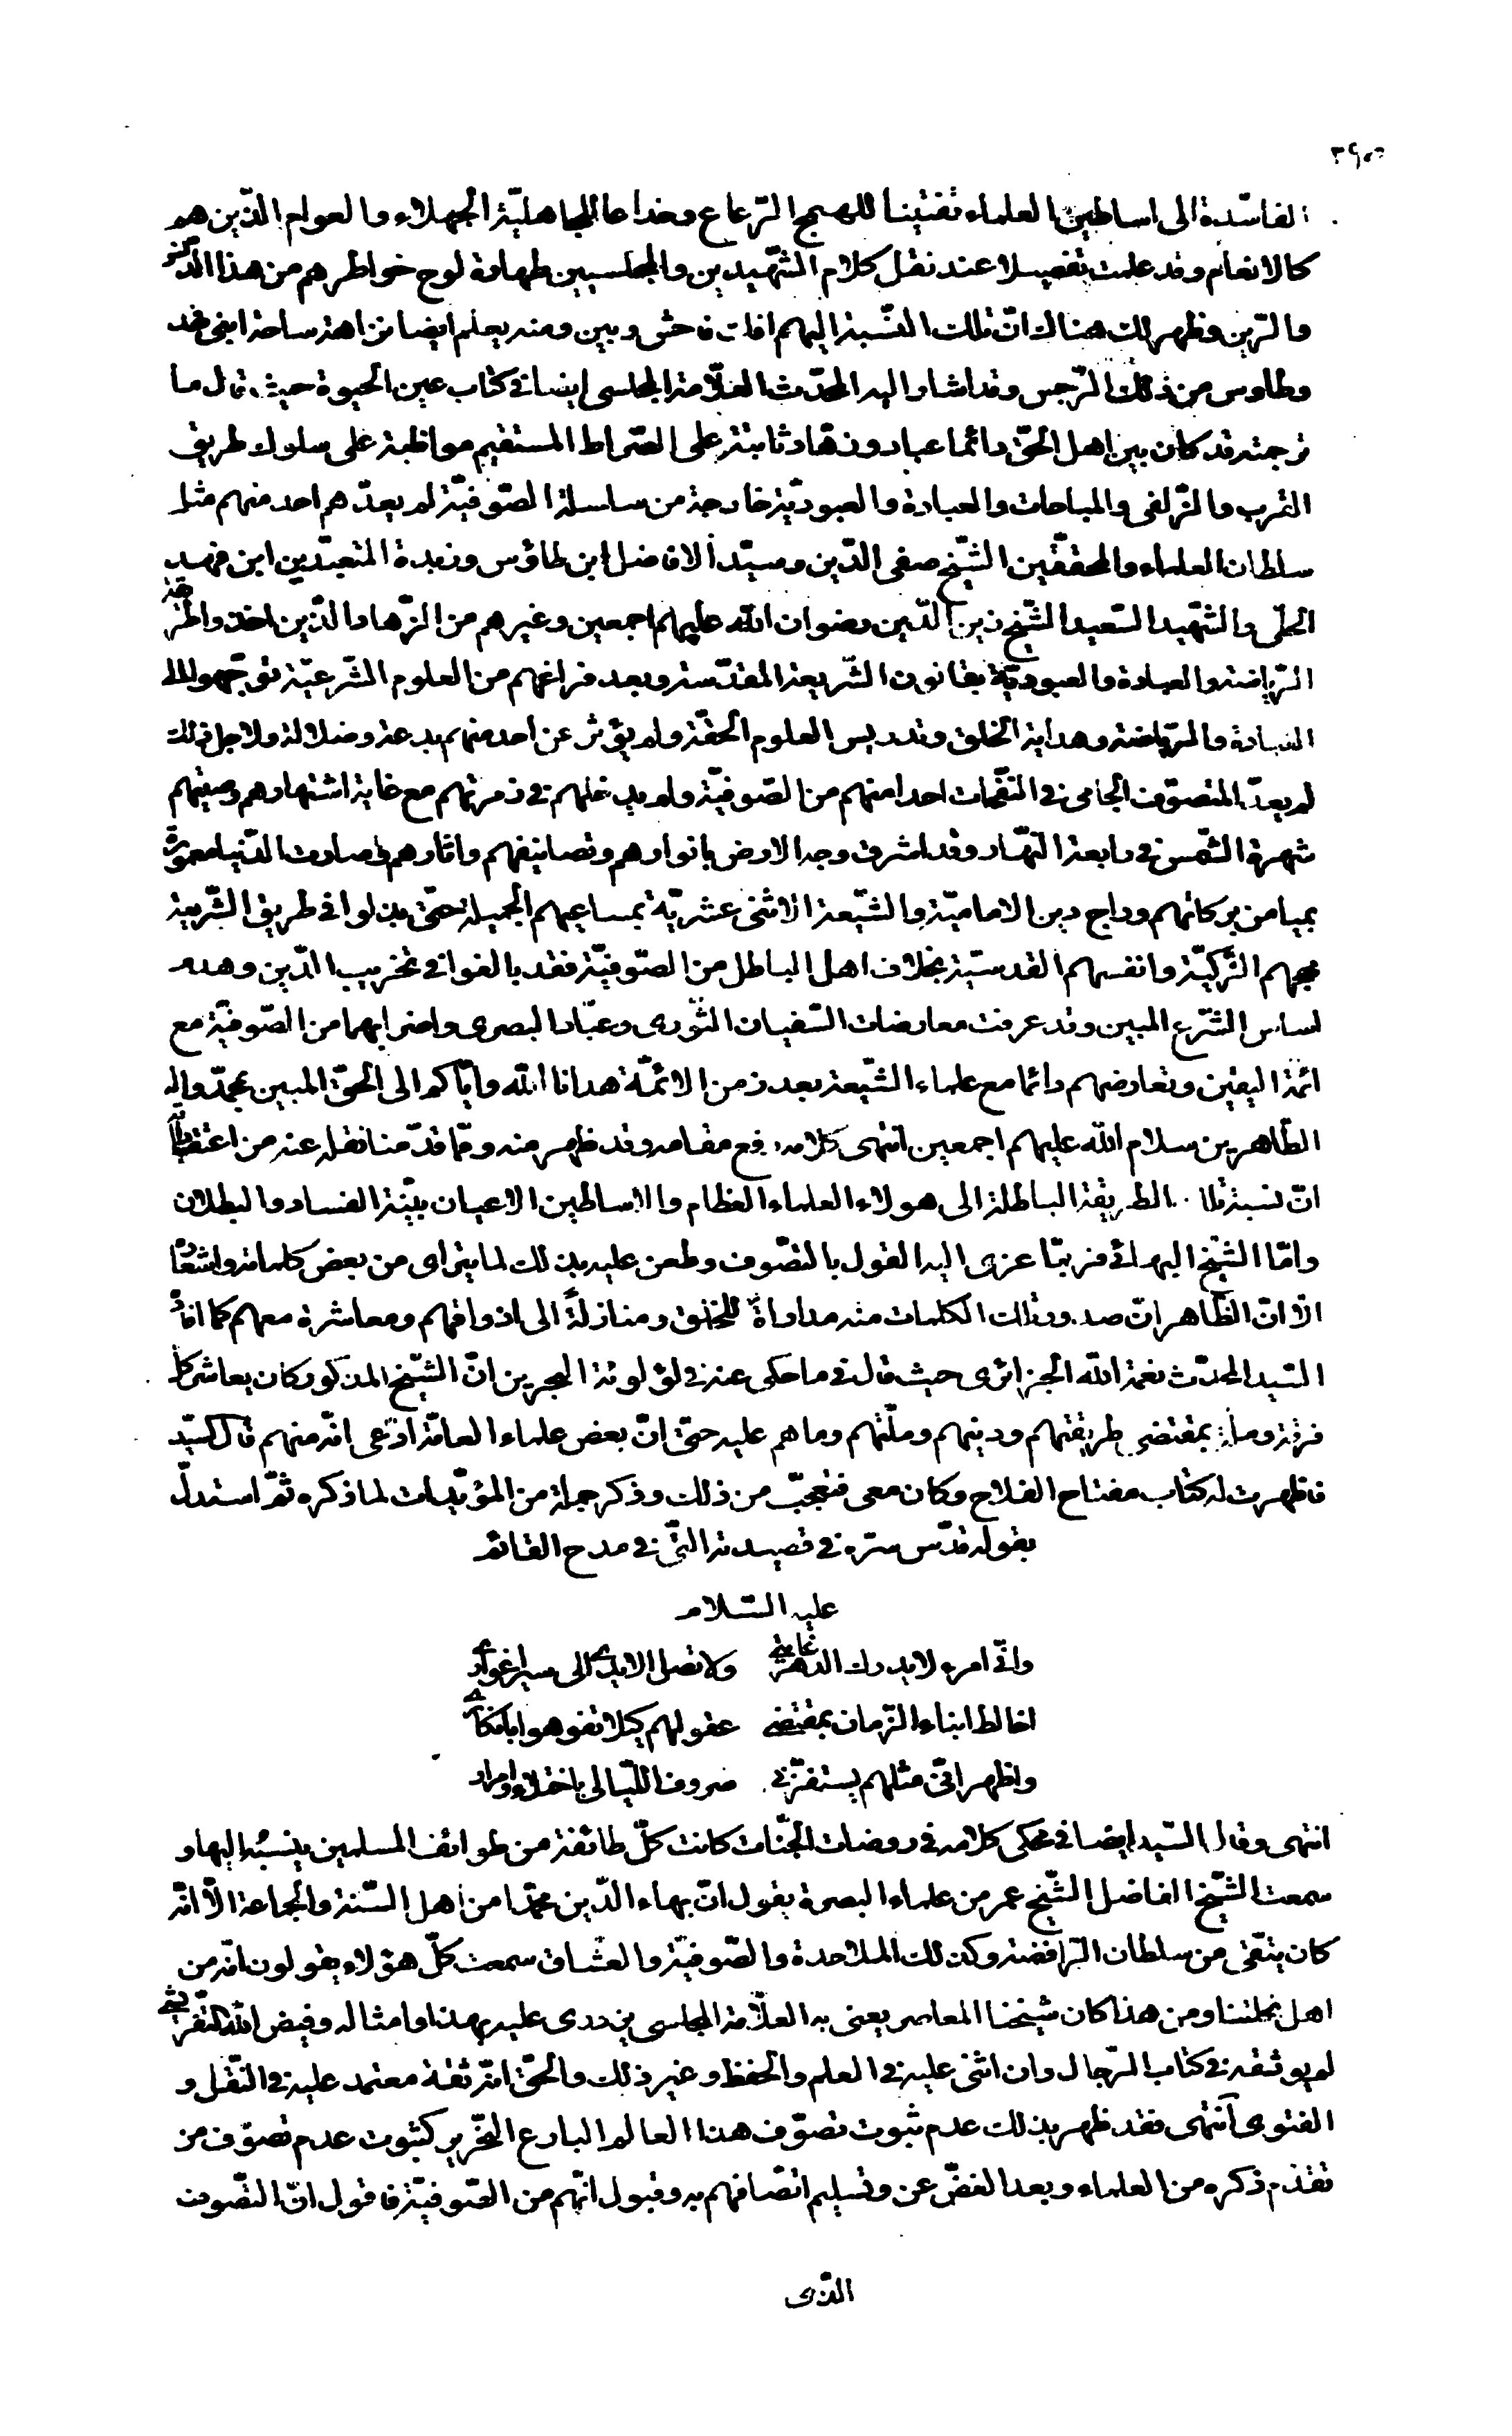 ٢٩٥
الفاسدة الى اساطين العلماء تفتينا للهمج الرّعاع وخداعا للجاهليّة الجهلاء والعوام الذّين هم
كالانعام وقد علمت تفصيلا عند نقل كلام الشّهيدين والمجلسيين طهارة لوح خواطرهم من هذا الدّكز
والرّين وظهر لك هنالك انّ تلك النّسبة اليهم افك فاحش وبين ومنه يعلم ايضا نزاهة ساحة ابنى فهد
وطاوس من ذلك الرّجس وقد اشار اليه المحدّث العلّامة المجلسى ايضا فى كتاب عين الحيوة حيث قال ما
ترجمته قد كان بين اهل الحقّ دائما عباد وزهاد ثابتة على الصّراط المستقيم مواظبة على سلوك طريق
القرب والزّلفى والمباحات والعبادة والعبوديّة خارجة من سلسلة الصّوفيّة لم يعدّهم احد منهم مثل
سلطان العلماء والمحقّقين الشّيخ صفى الدّين وسيّد الافاضل ابن طاؤس وزبدة المتعبّدين ابن فهد
الحلّى والشّهيد السّعيد الشّيخ زين الدّين رضوان الله عليهم اجمعين وغيرهم من الزّهاد الذّين اخذوا طريقة
الرّياضة والعبادة والعبوديّة بقانون الشّريعة المقدّسة وبعد فراغهم من العلوم الشّرعيّة توجّهوا الى
العبادة والرّياضة وهداية الخلق وتدريس العلوم الحقّة ولم يؤثر عن احد منهم بدعة وضلالة ولاجل ذلك
لم يعدّ المتصوّف الجامى فى النّفحات احدا منهم من الصّوفيّة ولم يدخلهم فى زمرتهم مع غاية اشتهارهم وصيتهم
شهرة الشّمس فى رابعة النّهار وقد اشرق وجه الارض بانوارهم وتصانيفهم واثارهم فصارت الدّنيا معمورة
بميامن بركاتهم وراج دين الاماميّة والشّيعة الاثنى عشريّة بمساعيهم الجميلة حتّى بذلوا فى طريق الشّريعة
مهجهم الزّكيّة وانفسهم القدسيّة بخلاف اهل الباطل من الصّوفيّة فقد بالغوا فى تخريب الدّين وهدم
اساس الشّرع المبين وقد عرفت معارضات السّفيان الثّورى وعبّاد البصرى واضرابهما من الصّوفيّة مع
ائمّة اليقين وتعارضهم دائما مع علماء الشّيعة بعد زمن الائمّة هدانا الله وايّاكم الى الحقّ المبين بمحمّد واله
الطّاهرين سلام الله عليهم اجمعين انتهى كلامه رفع مقامه وقد ظهر منه وممّا قدّمنا نقله عنه من اعتقاداته
انّ نسبة تلك الطريقة الباطلة الى هولاء العلماء العظام والاساطين الاعيان بيّنة الفساد والبطلان
وامّا الشّيخ البهائى فربّما عزى اليه القول بالتصّوف وطعن عليه بذلك لما يترائ من بعض كلماته واشعاره
الّا انّ الظّاهر انّ صدور تلك الكلمات منه مداراة للخلق ومنازلةً الى اذواقهم ومعاشرة معهم كما افاده
السّيد المحدّث نعمة الله الجزائرى حيث قال فى ما حكى عنه فى لؤلؤة البحرين انّ الشّيخ المذكور كان يعاشر كلّ
فرقة وملّة بمقتضى طريقتهم ودينهم وملّتهم وما هم عليه حتّى انّ بعض علماء العامّة ادّعى انّه منهم قال السّيّد
فاظهرت له كتاب مفتاح الفلاح وكان معى فتعجّب من ذلك وذكر جملة من المؤيّدات لما ذكره ثمّ استدلّ
بقوله قدّس سرّه فى قصيدته الّتى فى مدح القائم
عليه السّلام
وانّى امرء لا يدرك الدّهر غايتى ولا تصل الايدى الى سبر اغوارى
اخالط ابناء الزّمان بمقتضى عقولهم كيلا تفوهوا بانكارى
واظهر انّى مثلهم يستفزّنى صروف اللّيالى باختلاء وامرار
انتهى وقال السّيد ايضا فى محكى كلامه فى روضات الجّنات كانت كلّ طائفة من طوائف المسلمين ينسبُه اليها و
سمعت الشّيخ الفاضل الشّيخ عمر من علماء البصرة يقول انّ بهاء الدّين محمّدا من اهل السّنة والجماعة الّا انّه
كان يتّقى من سلطان الرّافضة وكذلك الملاحدة والصّوفيّة والعشّاق سمعت كلّ هؤلاء يقولون انّه من
اهل نحلتنا ومن هذا كان شيخنا المعاصر يعنى به العلّامة المجلسى يزدرى عليه بهذا وامثاله وفيض الله التّفريشى
لم يوثقه فى كتاب الرّجال وان اثنى عليه فى العلم والحفظ وغير ذلك والحقّ انّه ثقة معتمد عليه فى النّقل و
الفتوى انتهى فقد ظهر بذلك عدم ثبوت تصوّف هذا العالم البارع النّحرير كثبوت عدم تصوّف من
تقدّم ذكره من العلماء وبعد الغضّ عن وتسليم اتصّافهم به وقبول انّهم من الصّوفيّة فاقول انّ التصّوف
الذّى